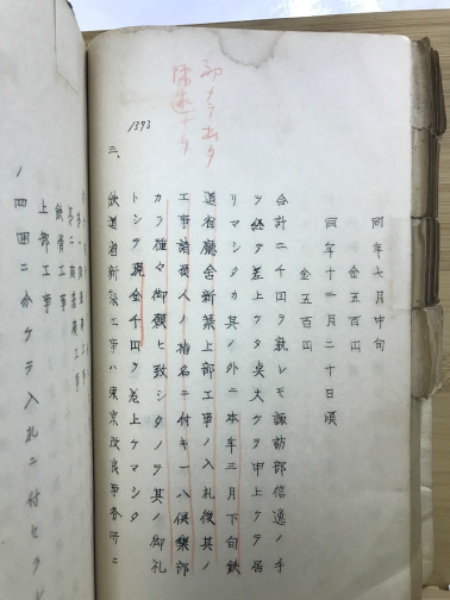 1393
同年七月中旬
金五百円
同年十二月二十日頃
金五百円
合計二千円ヲ孰レモ諏訪部信適ノ手
ヲ経テ差上ケタ丈ケヲ申上ケテ居
リマシタカ其ノ外ニ本年三月下旬鉄
道省廳舎新築上部工事ノ入札後其ノ
工事請負人ノ指名ニ付キ一八倶楽部
カラ種々御願ヒ致シタノテ其ノ御礼
トシテ現金千円ヲ差上ケマシタ
三、
鉄道省新築工事ハ東京改良事務所ニ
第二期基礎工事
鉄骨工事
上部工事
ノ四囲ニ分ケテ入札ニ付セラレ